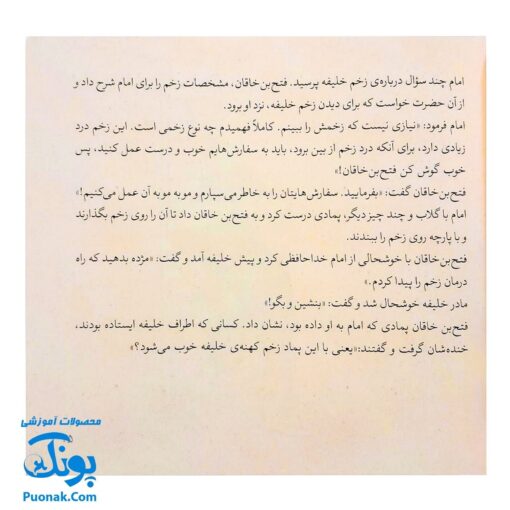 امام چند سؤال درباره‌ی زخم خلیفه پرسید. فتح‌بن‌خاقان، مشخصات زخم را برای امام شرح داد و
از آن حضرت خواست که برای دیدن زخم خلیفه، نزد او برود.
امام فرمود: «نیازی نیست که زخمش را ببینم. کاملاً فهمیدم چه نوع زخمی است. این زخم درد
زیادی دارد، برای آنکه درد زخم از بین برود، باید به سفارش‌هایم خوب و درست عمل کنید، پس
خوب گوش کن فتح‌بن‌خاقان!»
فتح‌بن‌خاقان گفت: «بفرمایید. سفارش‌هایتان را به خاطر می‌سپارم و موبه‌مو به آن عمل می‌کنیم!»
امام با گلاب و چند چیز دیگر، پمادی درست کرد و به فتح‌بن خاقان داد تا آن را روی زخم بگذارند
و با پارچه روی زخم را ببندند.
فتح‌بن‌خاقان با خوشحالی از امام خداحافظی کرد و پیش خلیفه آمد و گفت: «مژده بدهید که راه
درمان زخم را پیدا کردم.»
مادر خلیفه خوشحال شد و گفت: «بنشین و بگو!»
فتح‌بن خاقان پمادی که امام به او داده بود، نشان داد. کسانی که اطراف خلیفه ایستاده بودند،
خنده‌شان گرفت و گفتند: «یعنی با این پماد زخم کهنه‌ی خلیفه خوب می‌شود؟»
محصولات آموزشی
پونک
Puonak.Com